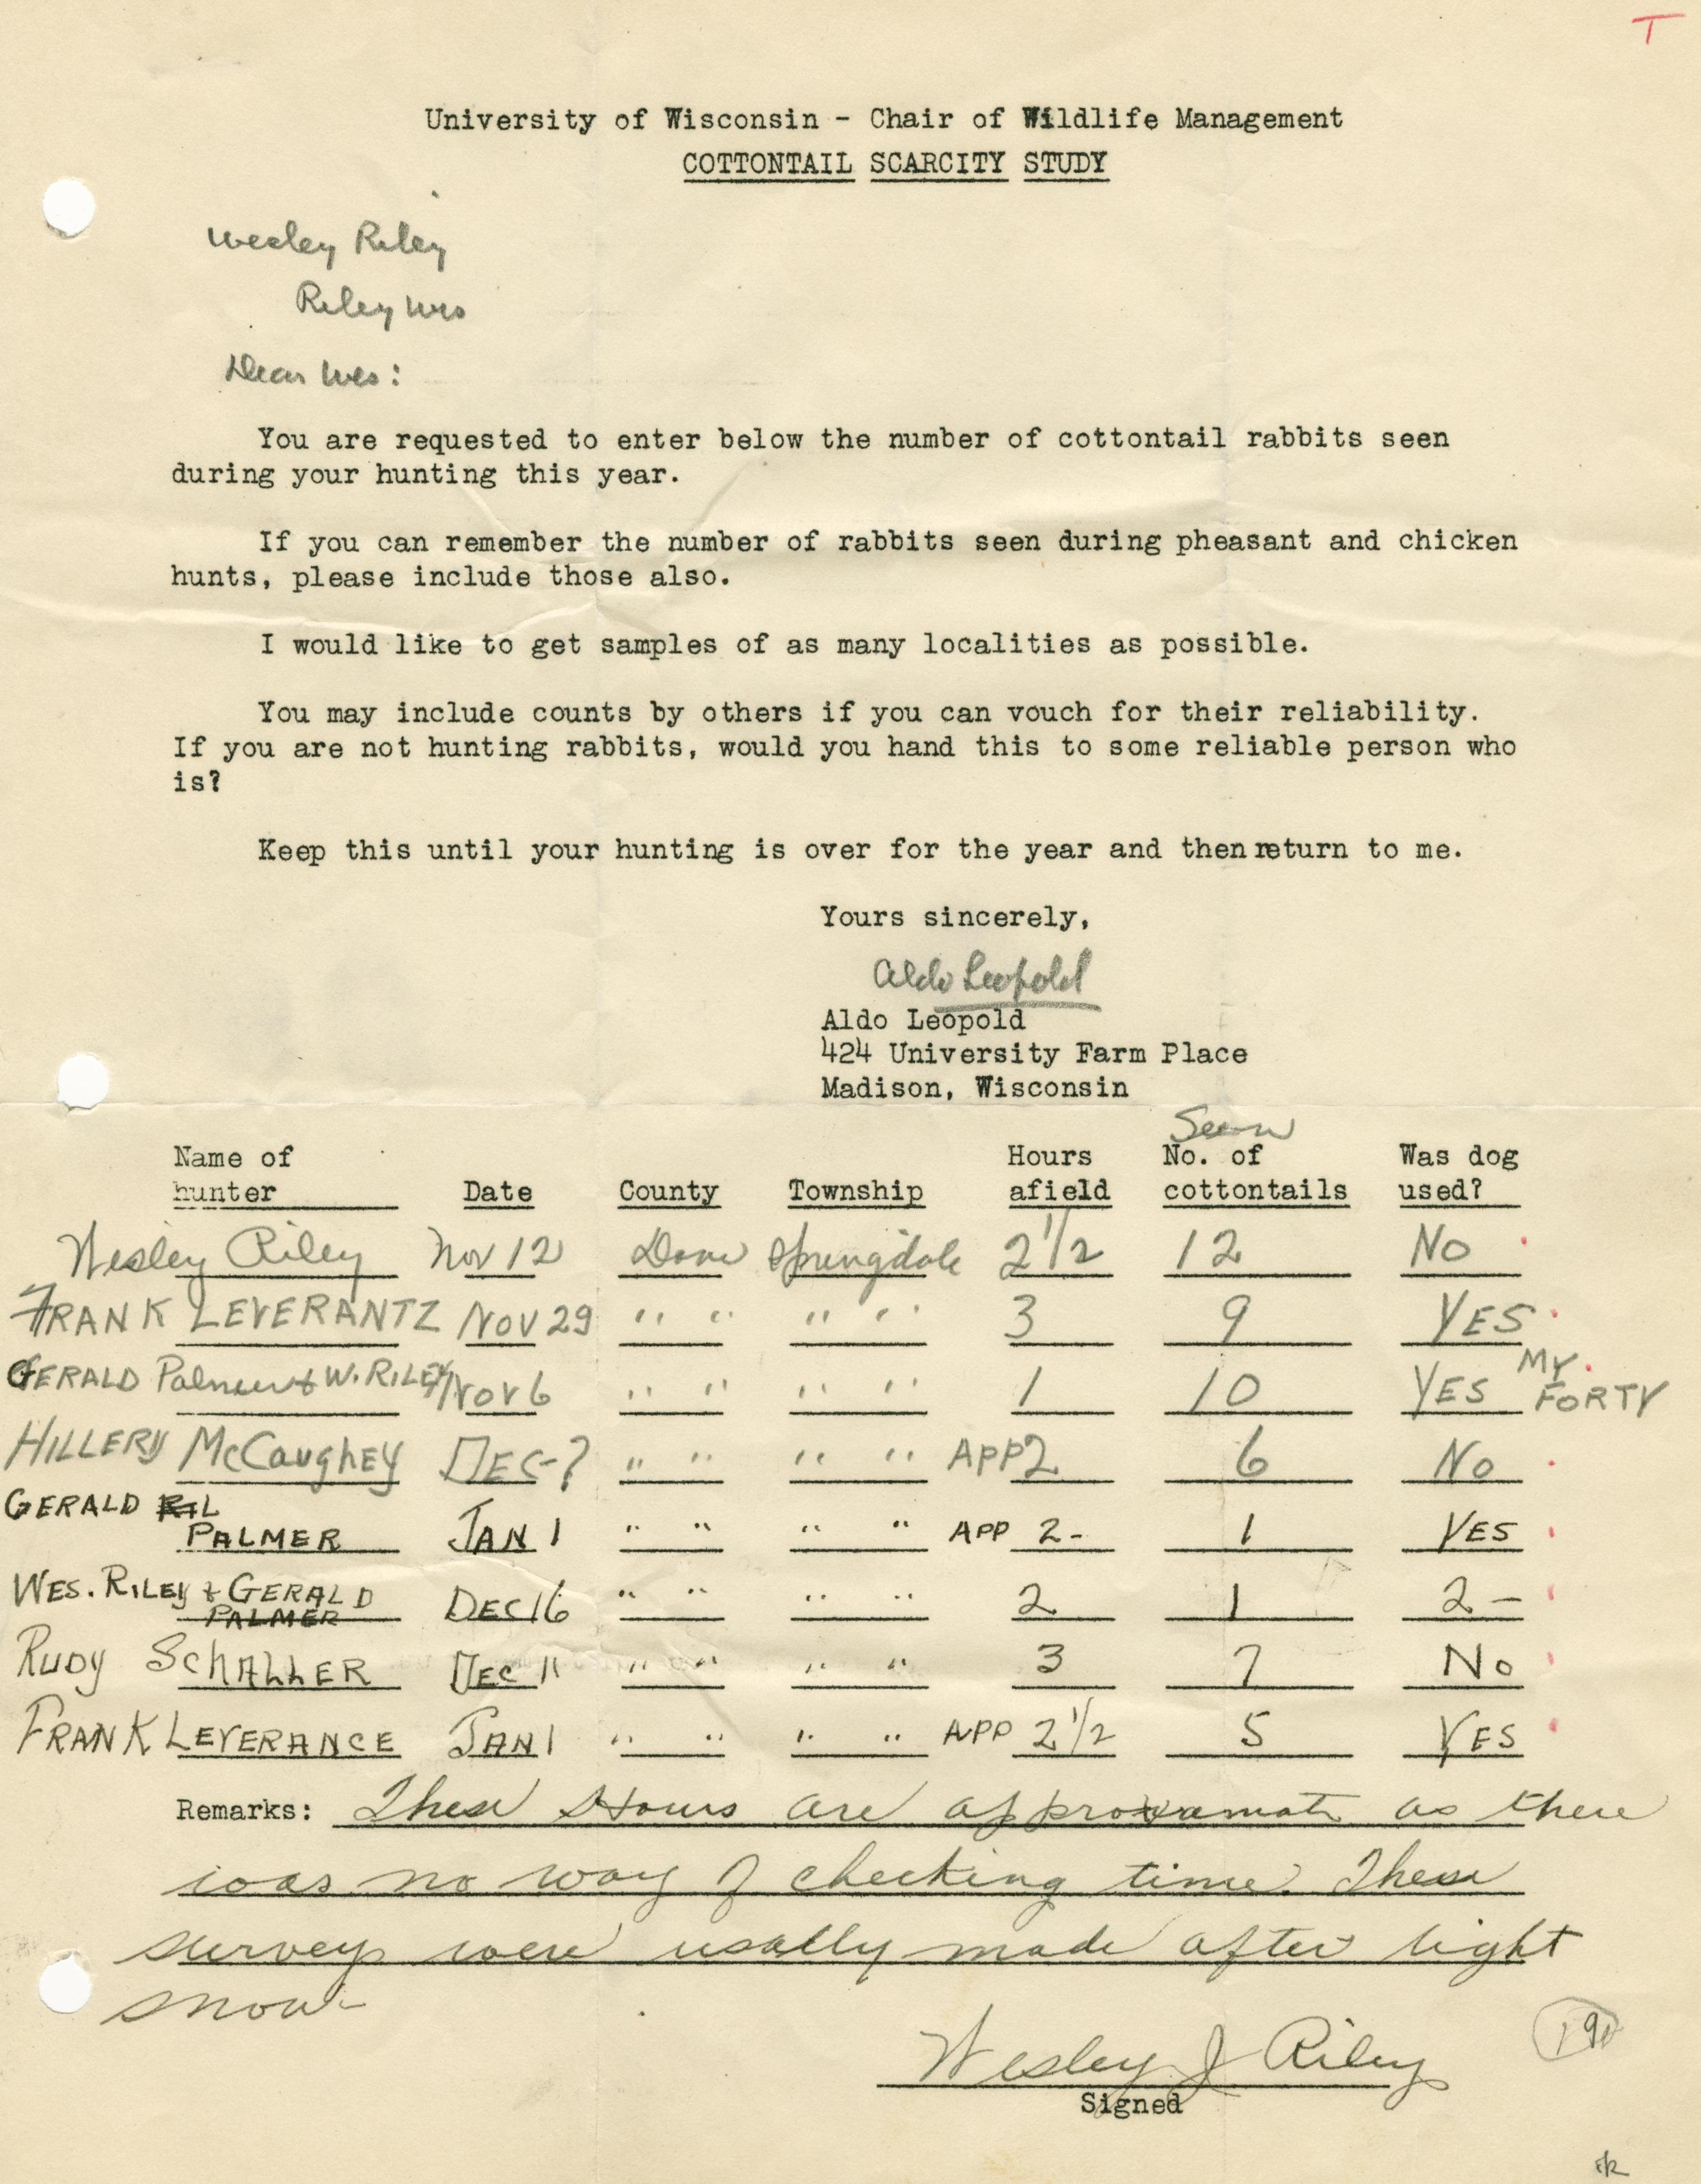 T
University of Wisconsin - Chair of Wildlife Management
COTTONTAIL SCARCITY STUDY
Wesley Riley
Riley Wis
Dear Wes:
You are requested to enter below the number of cottontail rabbits seen
during your hunting this year.
If you can remember the number of rabbits seen during pheasant and chicken
hunts, please include those also.
I would like to get samples of as many localities as possible.
You may include counts by others if you can vouch for their reliability.
If you are not hunting rabbits, would you hand this to some reliable person who
is?
Keep this until your hunting is over for the year and then return to me.
Yours sincerely,
Aldo Leopold
Aldo Leopold
424 University Farm Place
Madison, Wisconsin
Seen
Name of Hours No. of Was dog
hunter Date County Township afield cottontails used?
Wesley Riley Nov 12 Dane Springdale 2 1/2 12 No
FRANK LEVERANTZ NOV 29 " " " " 3 9 YES
GERALD Palmer & W. RILEY NOV 6 " " " " 1 10 YES MY FORTY
HILLERY McCaugHEY DEC-? " " " " APP 2 6 No
GERALD RIL
PALMER JAN 1 " " " " APP 2- 1 YES
WES. RILEY & GERALD
PALMER DEC 16 " " " " 2 1 2-
RUDY SCHALLER DEC 11 " " " " 3 7 No
FRANK LEVERANCE JAN 1 " " " " APP 2 1/2 5 YES
Remarks: These Hours are approxamate as there
was no way of checking time. These
surveys were usally made after light
snow-
Wesley J Riley
Signed